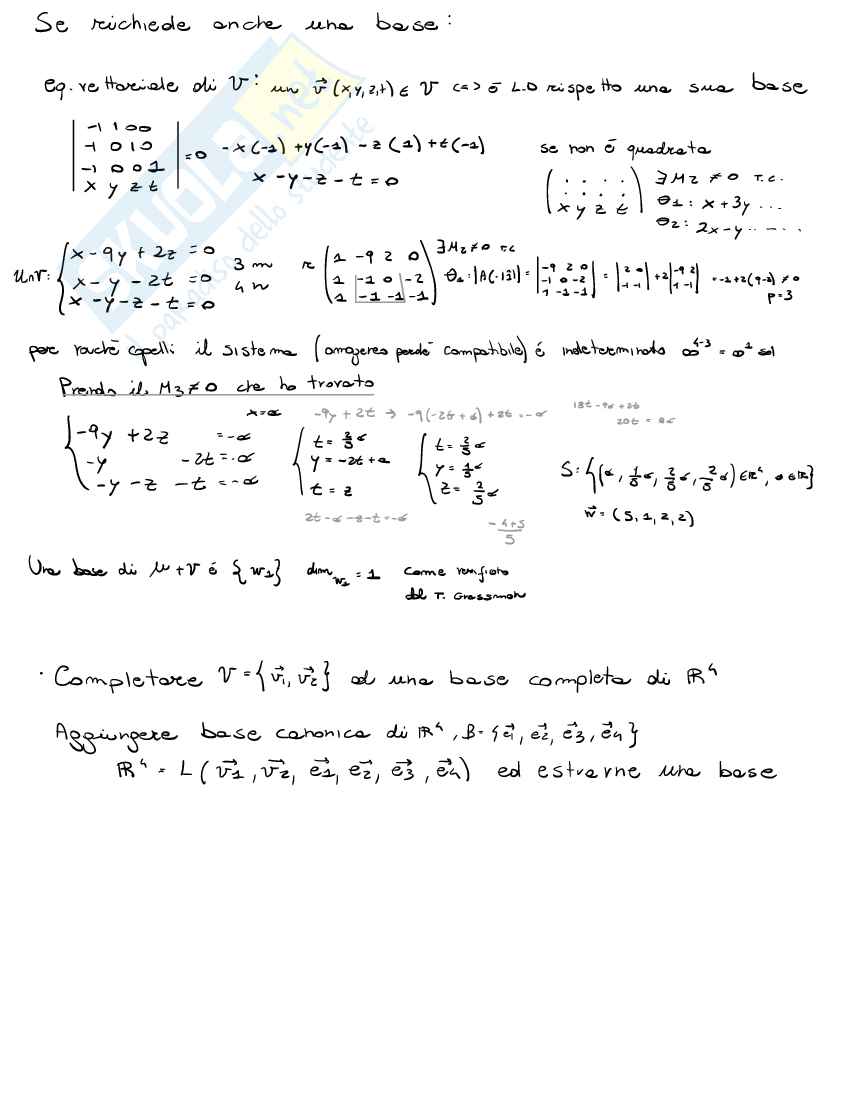 Se richiede anche una base:
eq. vettoriale di V: un v⃗ (x,y,z,t) ∈ V <=> è L.D rispetto una sua base
| -1 1 0 0 |
| -1 0 1 0 | = 0   -x(-1) + y(-1) - z(1) + t(-1)
| -1 0 0 1 |   x - y - z - t = 0
| x y z t |
se non è quadrata
( . . . . )   ∃ M2 ≠ 0 T.C.
( . . . . )   θ1: x + 3y ...
( x y z t )   θ2: 2x - y ...
U∩V: { x - 9y + 2z = 0
x - y - 2t = 0   3 m
x - y - z - t = 0   4 n
r ( 1 -9 2 0 )   ∃ M2 ≠ 0 T.C
( 1 -1 0 -2 )
( 1 -1 -1 -1 )
θ1: |A(·131)| = | -9 2 0 | = | 2 0 | + 2 | -9 2 | = -2+2(9-2) ≠ 0
| -1 0 -2 |   | -1 -1 |   | 1 -1 |   ρ=3
| 1 -1 -1 |
per rouché capelli il sistema (omogeneo perché compatibile) è indeterminato ∞⁴⁻³ = ∞¹ sol
Prendo il M3 ≠ 0 che ho trovato
x = α   -9y + 2t → -9(-2t+α) + 2t = -α   18t - 9α + 2t
20t = 8α
{ -9y + 2z = -α
-y - 2t = -α
-y - z - t = -α
{ t = 2/5 α
y = -2t + α
t = z
{ t = 2/5 α
y = 1/5 α
z = 2/5 α
S: {(α, 1/5 α, 2/5 α, 2/5 α) ∈ ℝ⁴, α ∈ ℝ}
w⃗ = (5, 1, 2, 2)
2t - α - z - t = -α
-4+5
5
Una base di U + V è {w1}   dim w1 = 1   come verificato
dal T. Grassman
· Completare V = {v⃗1, v⃗2} ad una base completa di ℝ⁴
Aggiungere base canonica di ℝ⁴, B = {e⃗1, e⃗2, e⃗3, e⃗4}
ℝ⁴ = L (v⃗1, v⃗2, e⃗1, e⃗2, e⃗3, e⃗4) ed estrarne una base
SKUOLA.net
il paradiso dello studente